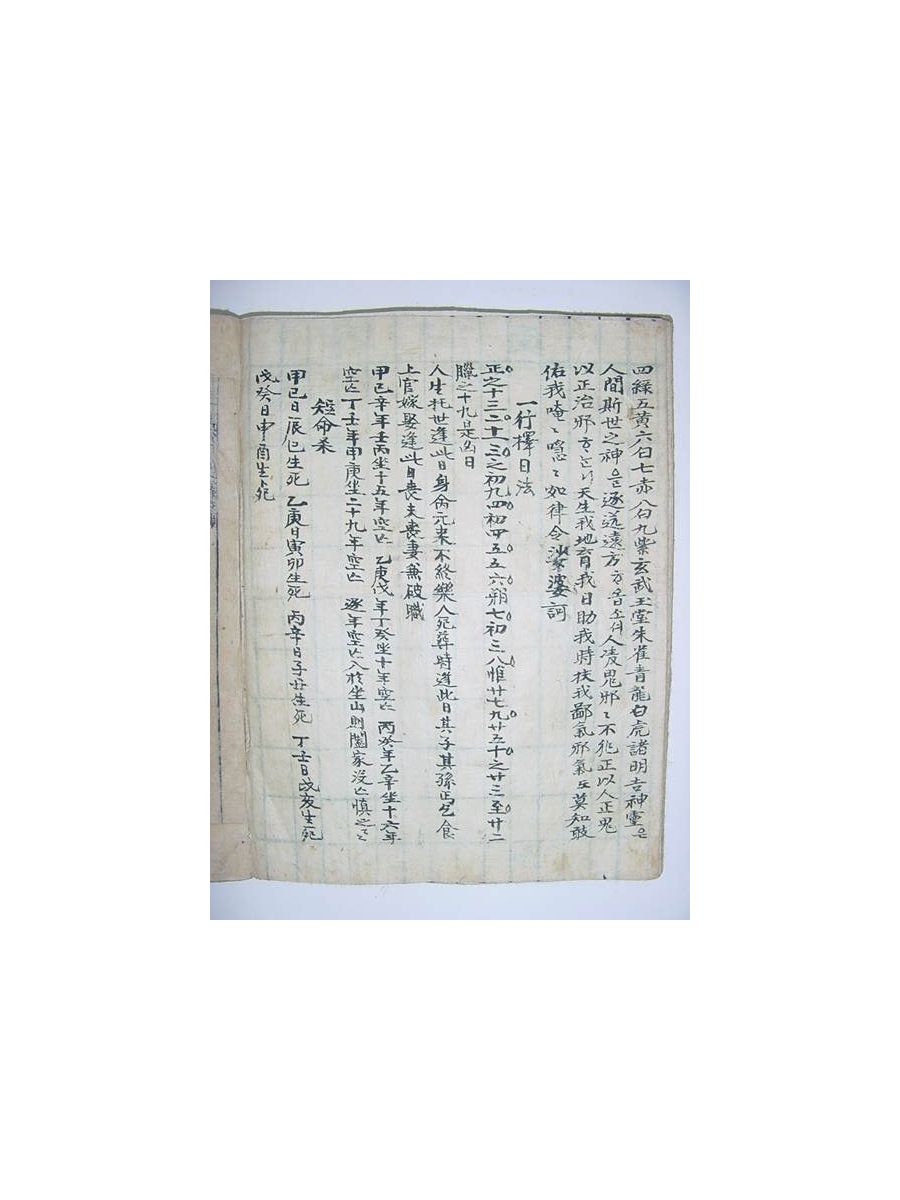 四綠五黃六白七赤八白九紫玄武玉堂朱雀靑龍白虎諸明吉神靈은
人間斯世之神은逐送遠方方음소셔人凌鬼邪〻不犯正以人正鬼
以正治邪天生我地育我日助我時扶我鄙氣邪氣莫知敢
佑我唵〻唸〻如律令娑婆訶
一行擇日法
正之十三二十一三之初九四初四五五六朔七初三八惟廿七九廿五十之廿三至廿二
臘之十九是凶日
人生托世逢此日身病元來不終樂人死葬時逢此日其子其孫丐乞食
上官嫁娶逢此日喪夫喪妻兼破職
甲己辛年壬丙坐十五年空亡 乙庚戊年丁癸坐十年空亡 丙癸年乙辛坐十六年
空亡丁壬年甲庚坐二十九年空亡 逐年空亡入於坐山則闔家沒亡愼之〻
短命杀
甲己日辰巳生死 乙庚日寅卯生死 丙辛日子丑生死 丁壬日戌亥生死
戊癸日申酉生死